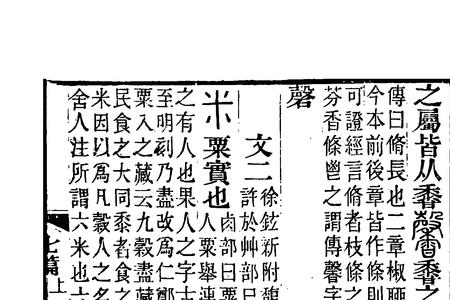 之屬皆从香馨香之
傳曰脩長也二章椒
今本前後章皆作條則
可證經言脩者枝條之
芬香條鬯之謂傳馨字
馨
文二
徐鉉新附馥
許於艸部曰
米 粟實也
鹵部曰粟
人粟舉連
之有人也果人之字古
至明刻乃盡改為仁鄭
粟入之藏云九穀盡藏
民食之大同黍者食之
米因以爲凡穀人之名
舍人注所謂六米也六
七篇上